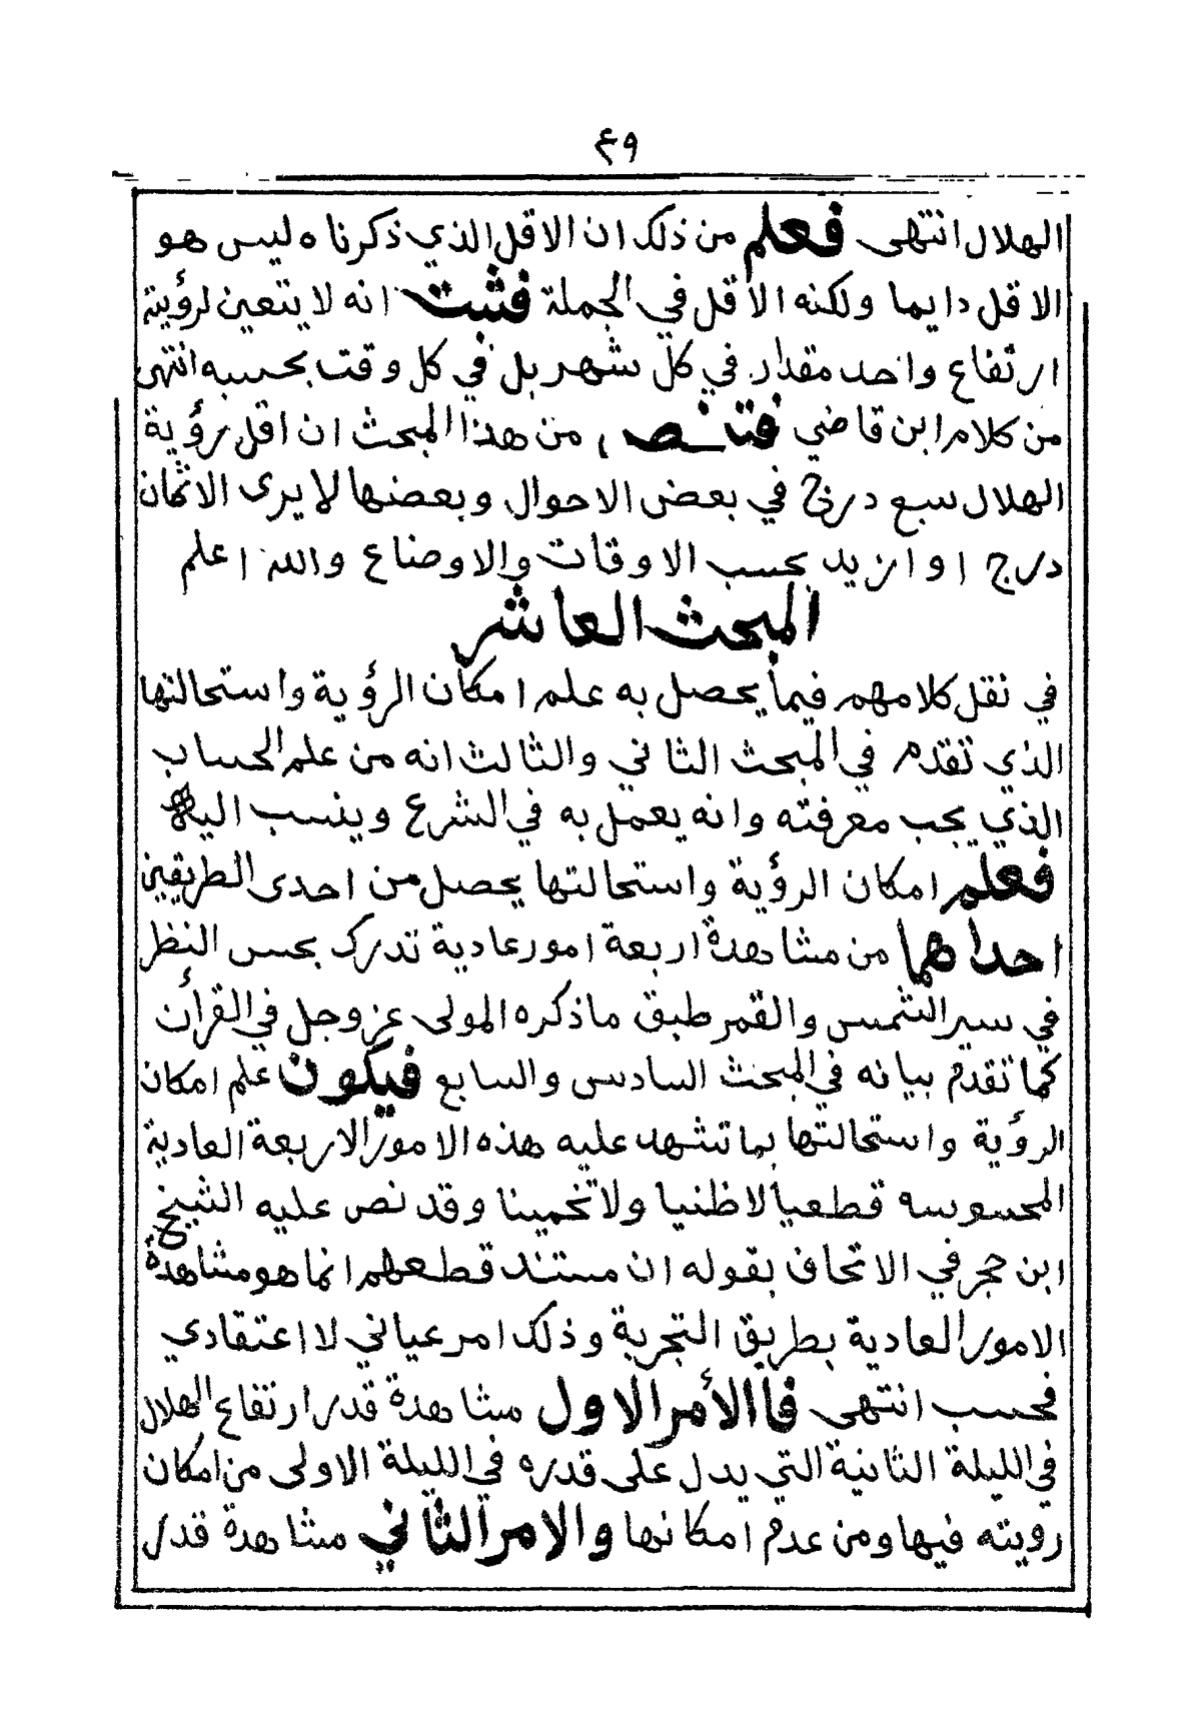 ٤٩
الهلال انتهى فعلم من ذلك ان الاقل الذي ذكرناه ليس هو
الاقل دايما ولكنه الاقل في الجملة فثبت انه لا يتعين لرؤيته
ارتفاع واحد مقدار في كل شهر بل في كل وقت بحسبه انتهى
من كلام ابن قاضي من هذا المبحث ان اقل رؤية
الهلال سبع درج في بعض الاحوال وبعضها لا يرى الا ثمان
درج او ازيد بحسب الاوقات والاوضاع والله اعلم
المبحث العاشر
في نقل كلامهم فيما يحصل به علم امكان الرؤية واستحالتها
الذي تقدم في المبحث الثاني والثالث انه من علم الحساب
الذي يجب معرفته وانه يعمل به في الشرع وينسب اليه
فعلم امكان الرؤية واستحالتها يحصل من احدى الطريقين
احداهما من مشاهدة اربعة امور عادية تدرك بحس النظر
في سير الشمس والقمر طبق ما ذكره المولى عز وجل في القرأن
كما تقدم بيانه في المبحث السادس والسابع فيكون علم امكان
الرؤية واستحالتها بما تشهد عليه هذه الامور الاربعة العادية
المحسوسه قطعيا لا ظنيا ولا تخمينا وقد نص عليه الشيخ
ابن حجر في الاتحاف بقوله ان مستند قطعهم انما هو مشاهدة
الامور العادية بطريق التجربة وذلك امر عياني لا اعتقادي
فحسب انتهى فأ الأمر الاول مشاهدة قدر ارتفاع الهلال
في الليلة الثانية التي يدل على قدره في الليلة الاولى من امكان
رويته فيها ومن عدم امكانها والامر الثاني مشاهدة قدر